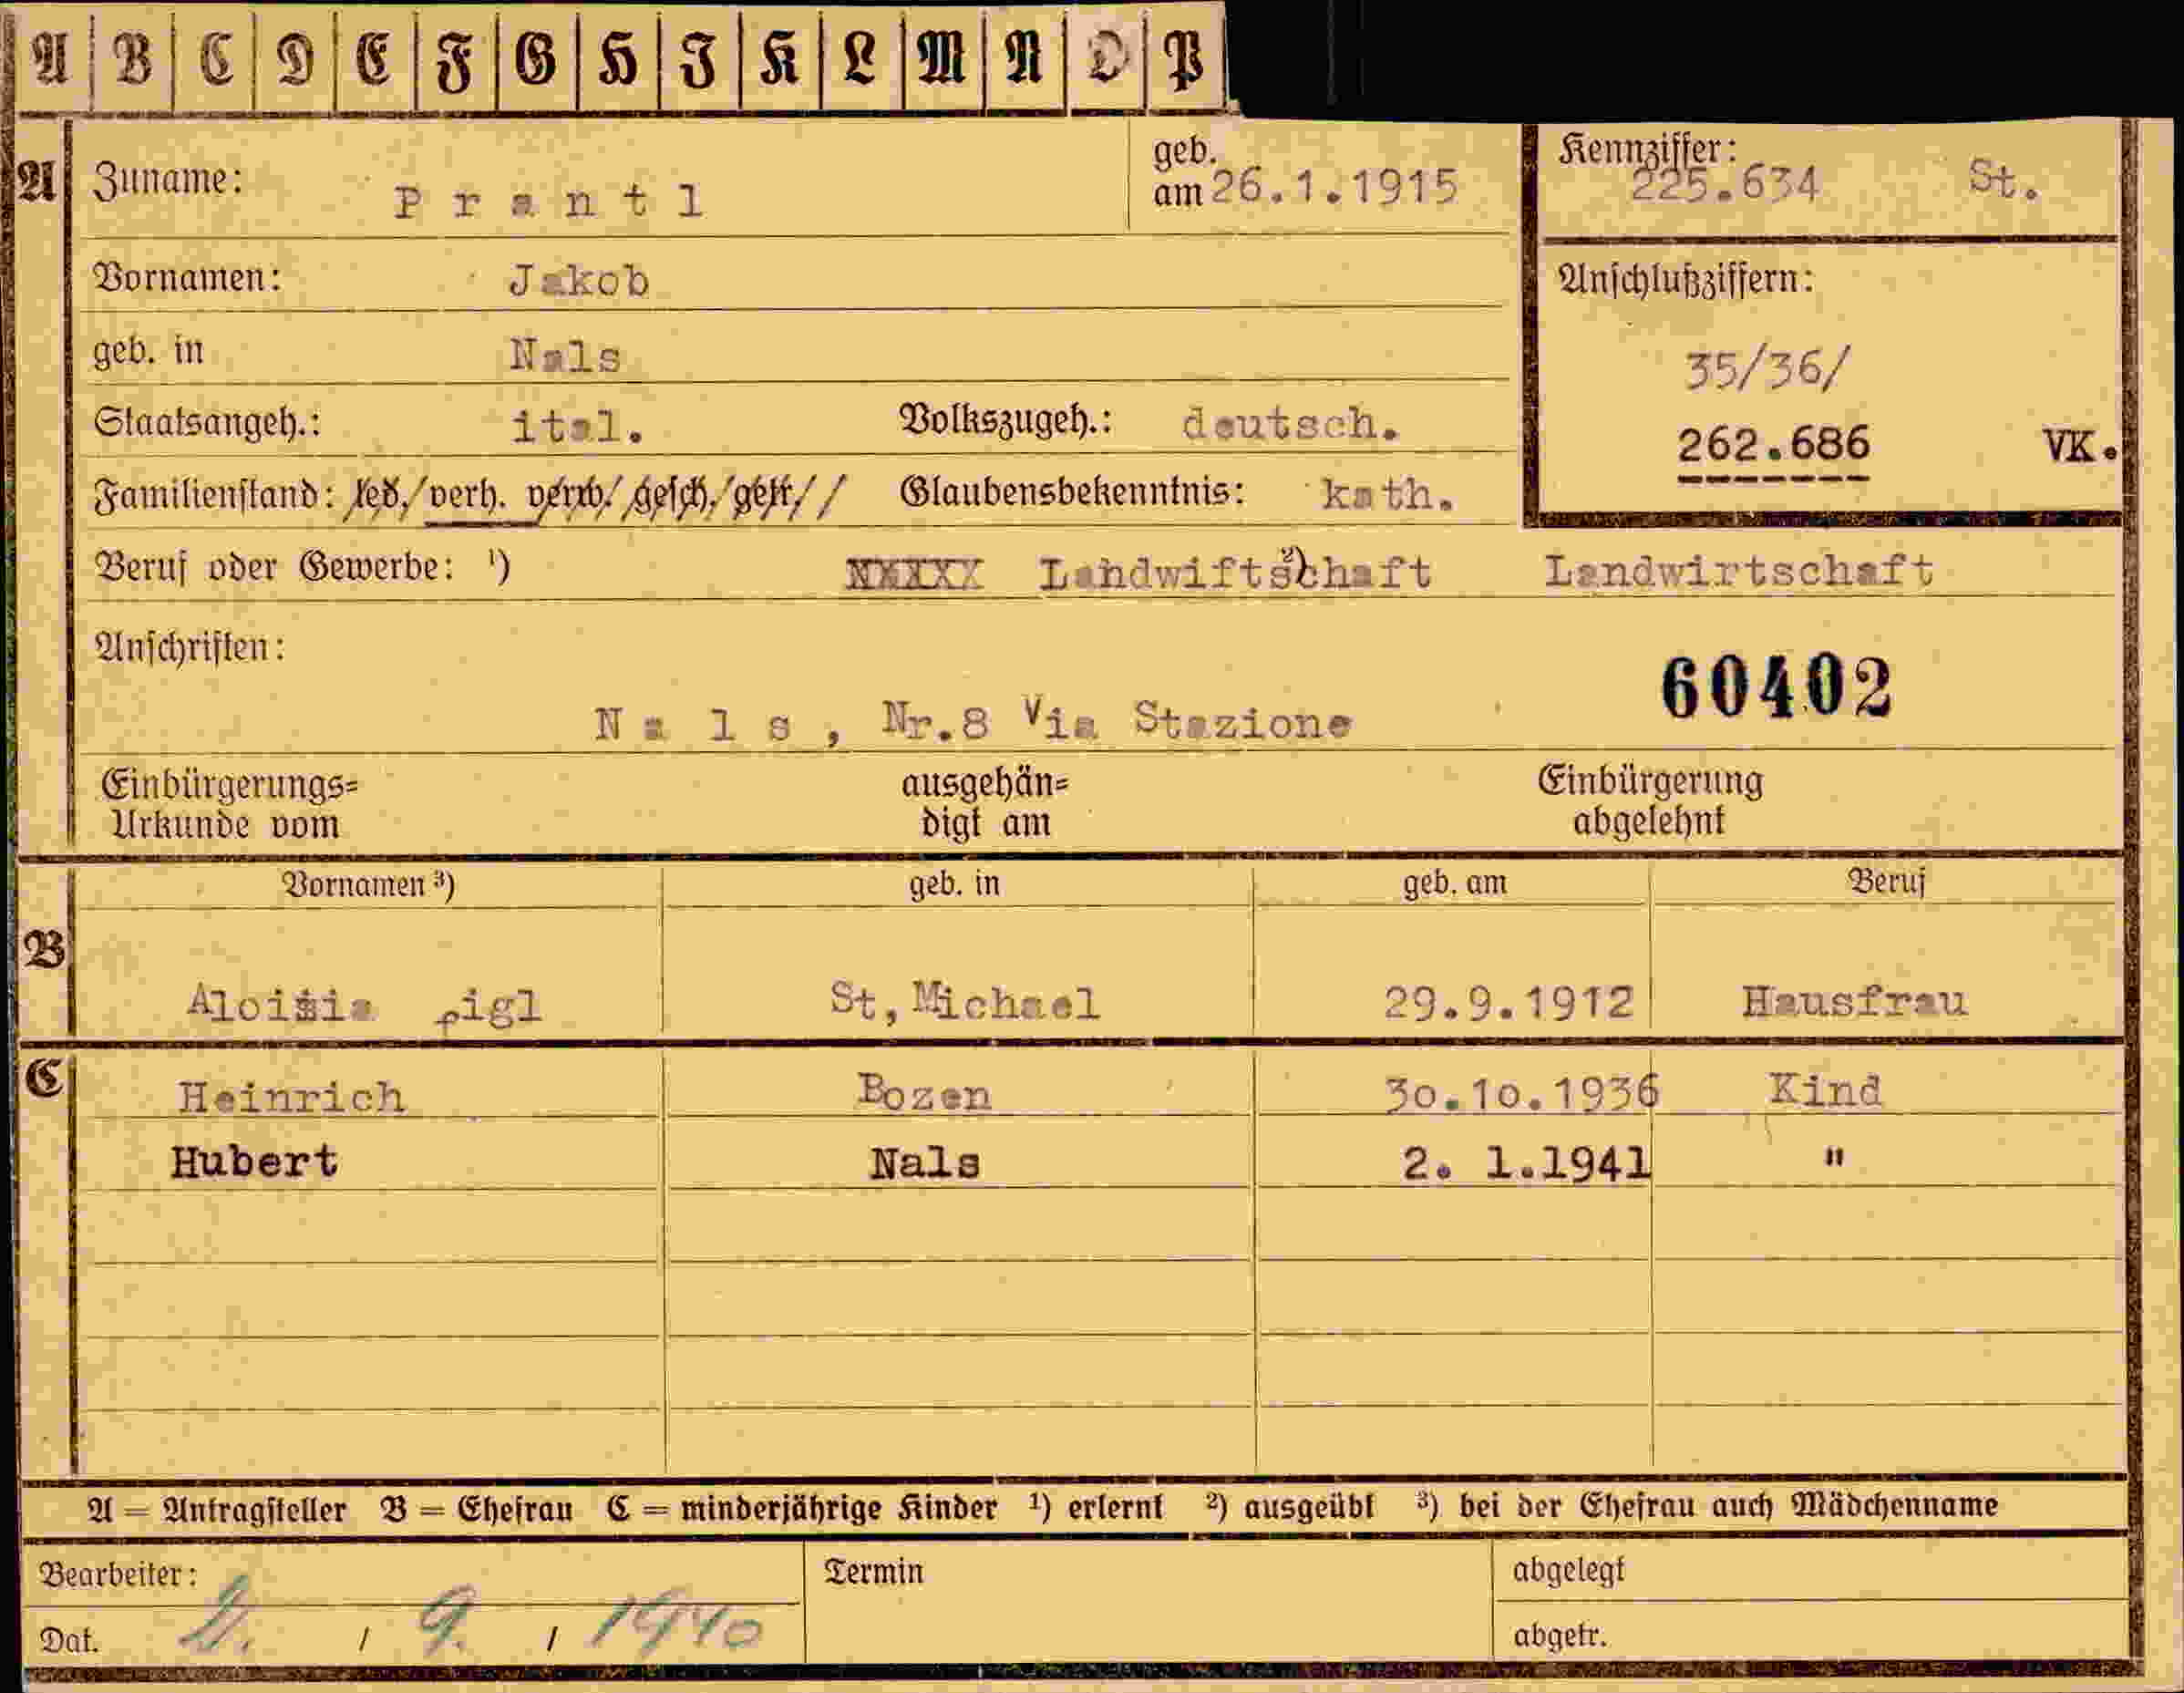 A B C D E F G H I K L M N O P
A Zuname: Prantl geb. am 26.1.1915 Kennziffer: 225.634 St.
Vornamen: Jakob Anschlußziffern:
geb. in Nals 35/36/
Staatsangeh.: ital. Volkszugeh.: deutsch. 262.686 VK.
Familienstand: led./verh. verw./gesch./getr.// Glaubensbekenntnis: kath.
Beruf oder Gewerbe: ¹) Landwiftschaft ²) Landwirtschaft
Anschriften: 60402
Nals, Nr.8 Via Stazione
Einbürgerungs=Urkunde vom ausgehän=digt am Einbürgerung abgelehnt
B Vornamen ³) geb. in geb. am Beruf
Aloisia St,Michael 29.9.1912 Hausfrau
C Heinrich Bozen 30.10.1936 Kind
Hubert Nals 2. 1.1941 "
A = Antragsteller B = Ehefrau C = minderjährige Kinder ¹) erlernt ²) ausgeübt ³) bei der Ehefrau auch Mädchenname
Bearbeiter: Termin abgelegt
Dat. 2. / 9. / 1940 abgetr.